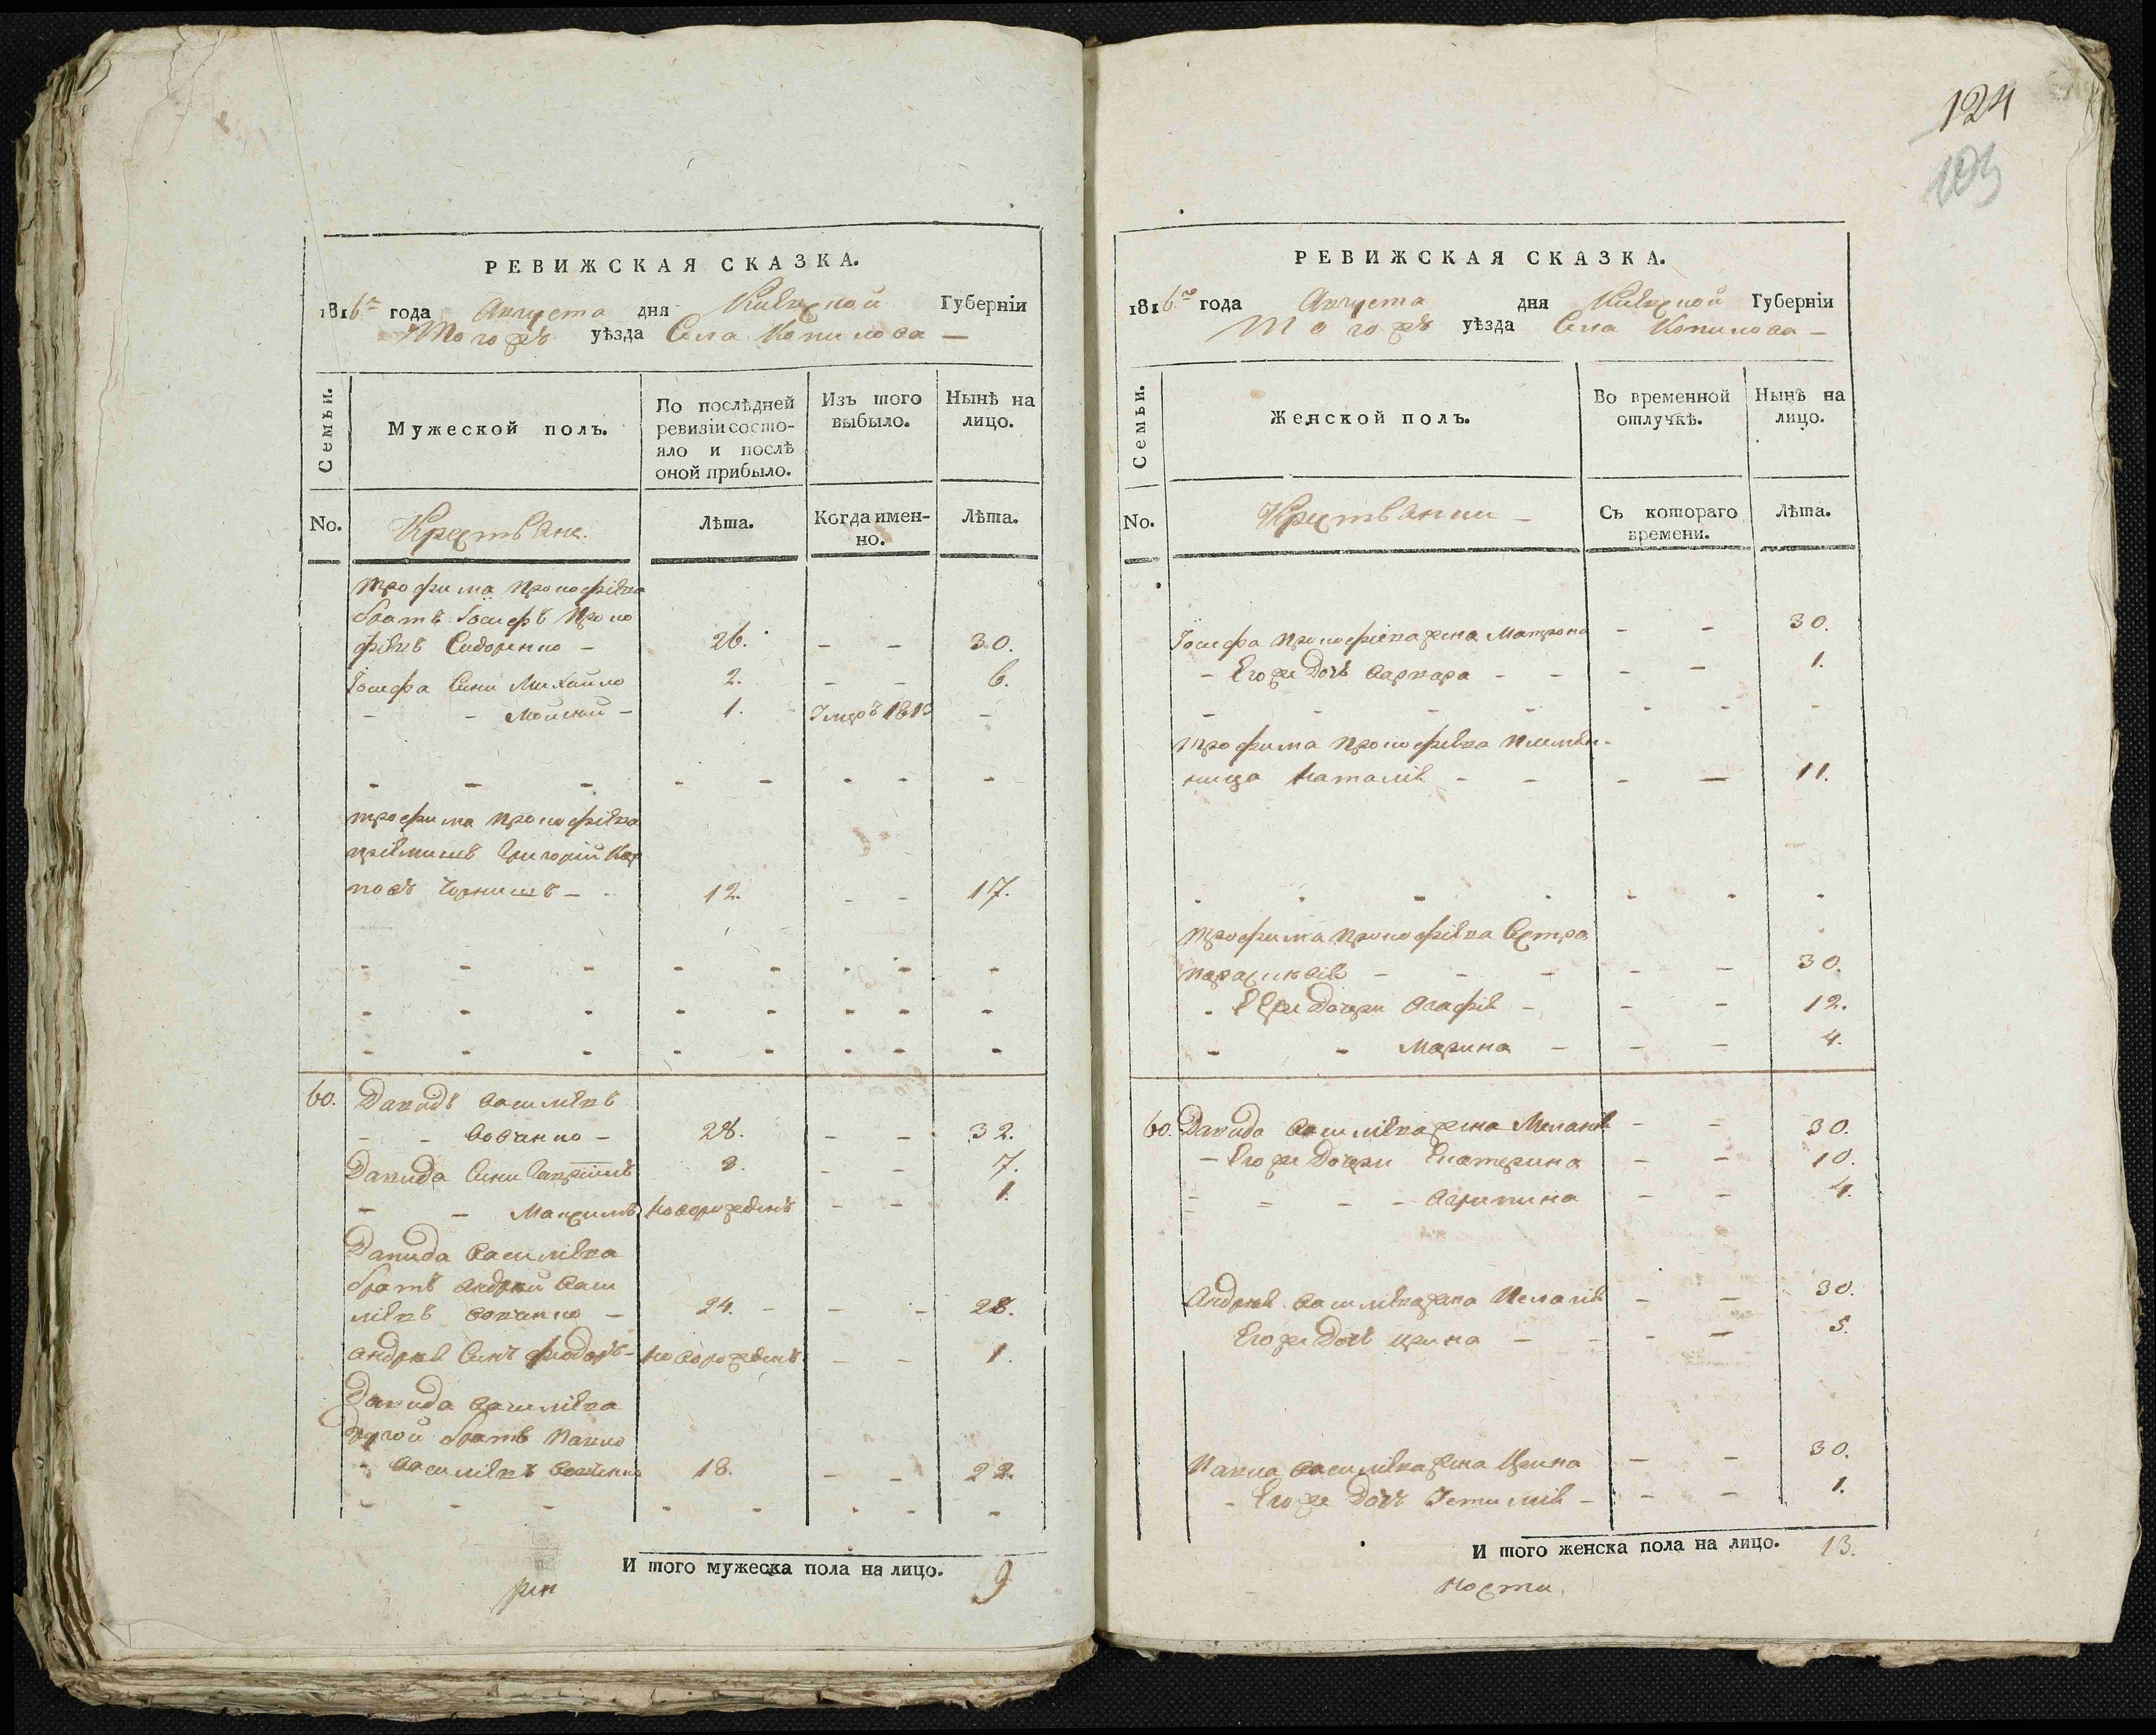 РЕВИЖСКАЯ СКАЗКА.
1816го года Августа дня Киевской Губерніи
Тогожъ уѣзда Села Копилова —
Семьи.
Мужеской полъ.
По послѣдней ревизіи состояло и послѣ оной прибыло.
Изъ того выбыло.
Нынѣ на лицо.
No.
Крестьяне.
Лѣта.
Когда именно.
Лѣта.
Трофима Прокофіева
братъ Іосифъ Проко
фіевъ Сидоренко — 26. - - 30.
Іосифа Сини Михайло 2. - - 6.
- - Мойсей — 1. Умеръ 1813 -
- - - - - - - -
Трофима Прокофіева
пріемишъ Григорій Кар
повъ Чорнишъ — 12. - - 17.
- - - - - - - -
- - - - - - - -
- - - - - - - -
60. Давидъ Василіевъ
- - Вовченко — 28. - - 32.
Давида Сини Гавріилъ 3. - - 7.
- - Максимъ новорожденъ - - 1.
Давида Василіева
братъ Андрей Васи
ліевъ Вовченко — 24. - - - 28.
Андрея Синъ Феодоръ — новорожденъ - - 1.
Давида Василіева
другой братъ Павло
- Василіевъ Вовченко 18. - - 22.
- - - - - - - -
И того мужеска пола на лицо. 9
124
РЕВИЖСКАЯ СКАЗКА.
1816го года Августа дня Киевской Губерніи
Тогожъ уѣзда Села Копилова —
Семьи.
Женской полъ.
Во временной отлучкѣ.
Нынѣ на лицо.
No.
Крестьянки —
Съ котораго времени.
Лѣта.
Іосифа Прокофіева жена Матрона - - 30.
- Егоже Дочь Варвара - - - - 1.
- - - - - - -
Трофима Прокофіева племян-
ница Наталія - - - — 11.
- - - - - - -
Трофима Прокофіева Сестра
Параскевія - - - - - 30.
- Еяже Дочери Агафія - - - 12.
- - Марина - - - 4.
60. Давида Василіева жена Меланія - - 30.
- Егоже Дочери Екатерина - - 10.
- - - - Агрипина - - 4.
Андрея Василіева жена Пелагія - - 30.
Егоже Дочь Ирина - - - — 5.
Павла Василіева жена Ирина - - 30.
- Егоже Дочь - - - 1.
И того женска пола на лицо. 13.
ности.